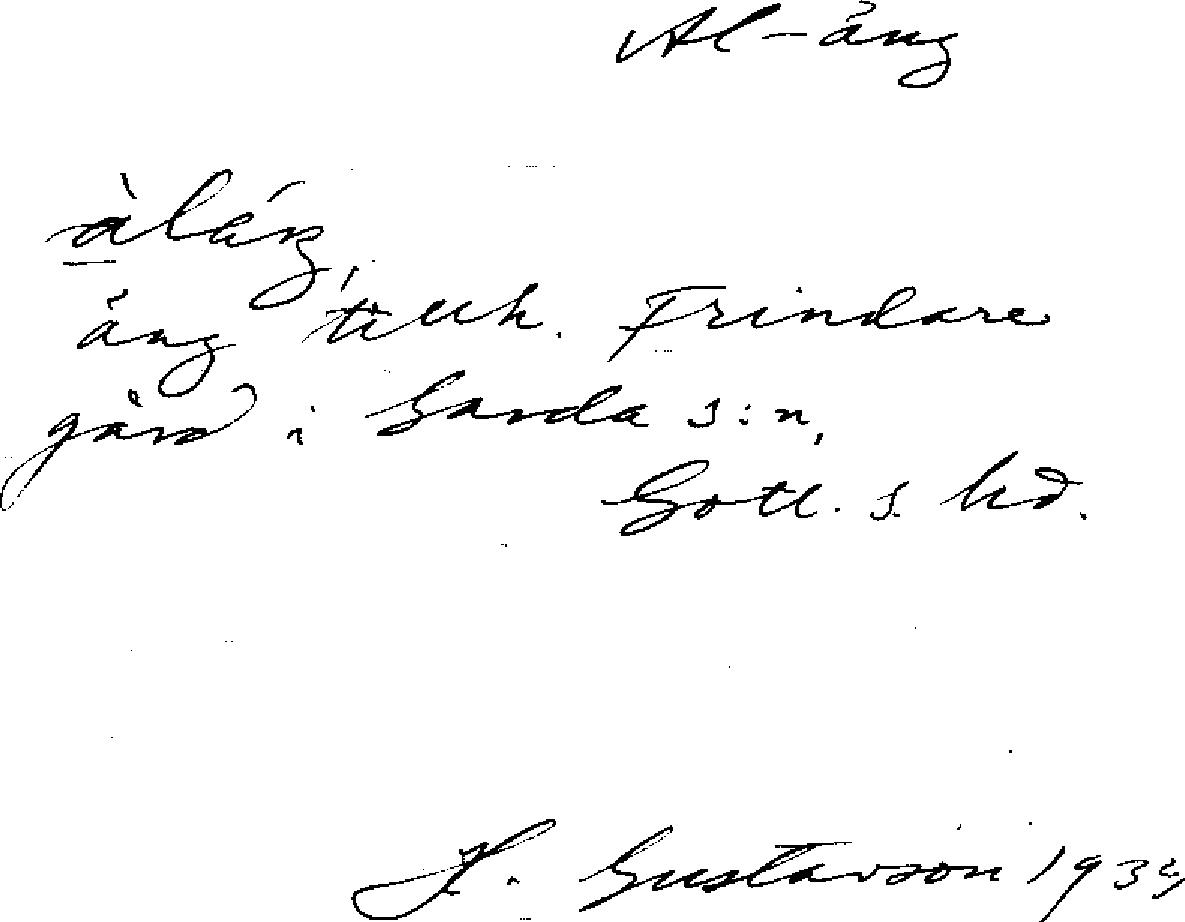 Al-äng
äng tillh. Frindare
gård i Garda s:n,
Gotl. s. hd.
H. Gustavson 1934